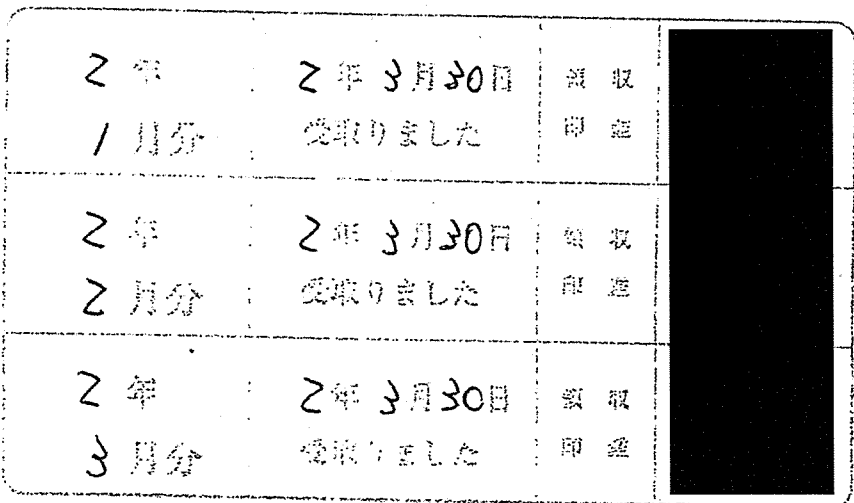 2年
1月分
2年3月30日
受取りました
領収
印
2年
2月分
2年3月30日
受取りました
領収
印
2年
3月分
2年3月30日
受取りました
領収
印